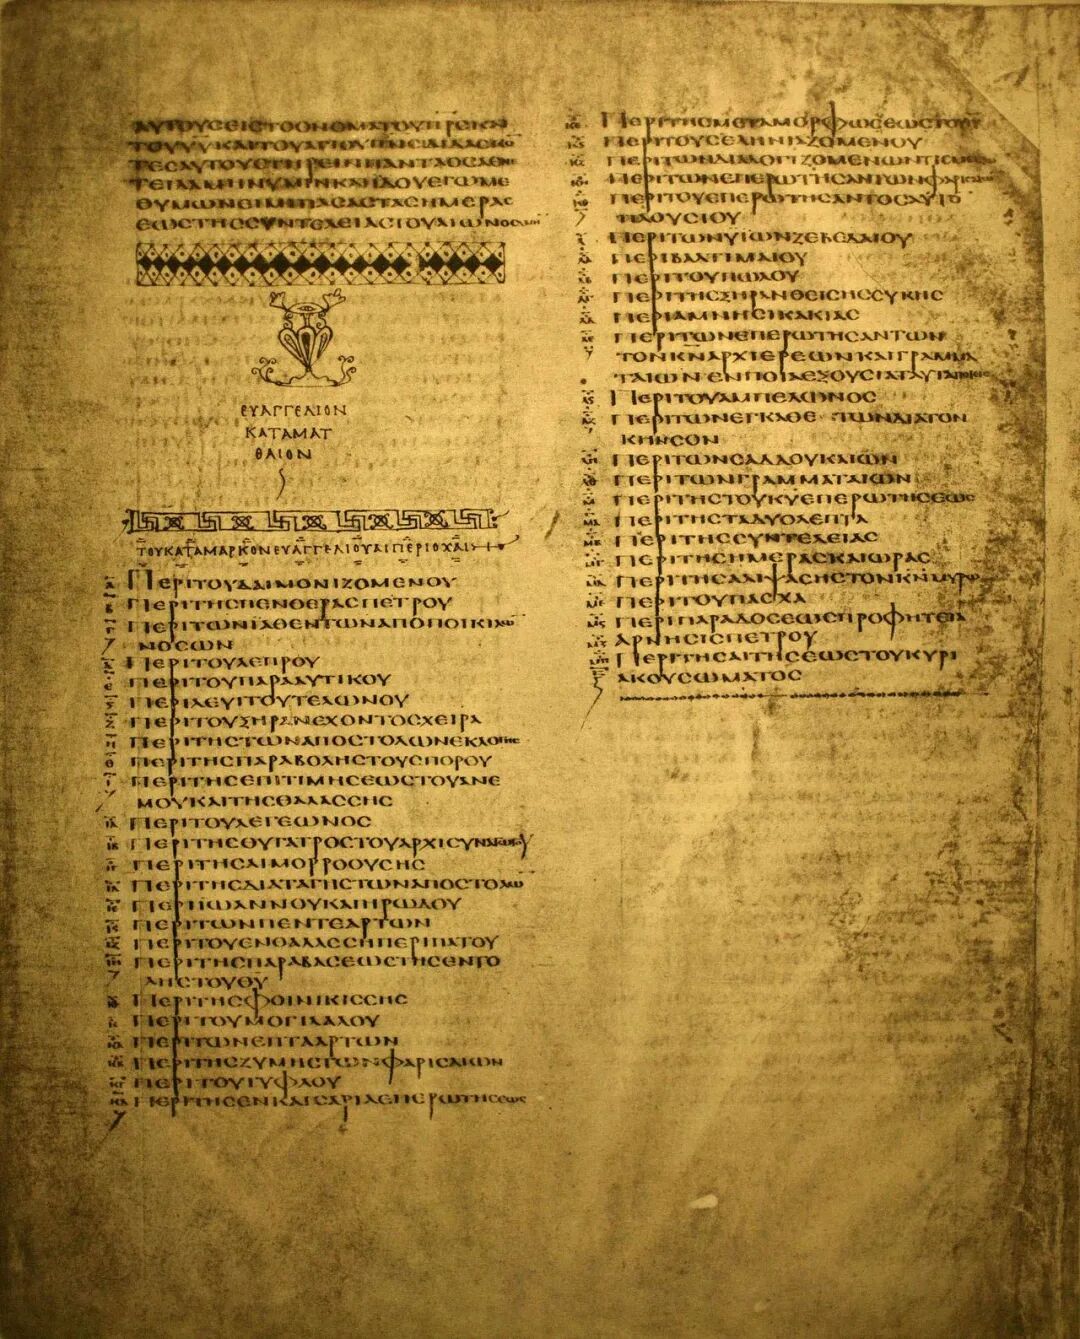 ΑΥΤΟΥΣΕΙΣΤΟΟΝΟΜΑΤΟΥΠΡΣΚΑΙ
ΤΟΥΥΥΚΑΙΤΟΥΑΓΙΟΥΠΝΣΔΙΔΑΣΚΟ
ΤΕΣΑΥΤΟΥΣΤΗΡΕΙΝΠΑΝΤΑΟΣΑΕΝΕ
ΤΕΙΛΑΜΗΝΥΜΙΝΚΑΙΙΔΟΥΕΓΩΜΕ
ΘΥΜΩΝΕΙΜΙΠΑΣΑΣΤΑΣΗΜΕΡΑΣ
ΕΩΣΤΗΣΣΥΝΤΕΛΕΙΑΣΤΟΥΑΙΩΝΟΣ
ΕΥΑΓΓΕΛΙΟΝ
ΚΑΤΑΜΑΤ
ΘΑΙΟΝ
ΤΟΥΚΑΤΑΜΑΡΚΟΝΕΥΑΓΓΕΛΙΟΥΑΙΠΕΡΙΟΧΑΙ
Α ΠΕΡΙΤΟΥΔΑΙΜΟΝΙΖΟΜΕΝΟΥ
Β ΠΕΡΙΤΗΣΠΕΝΘΕΡΑΣΠΕΤΡΟΥ
Γ ΠΕΡΙΤΩΝΙΑΘΕΝΤΩΝΑΠΟΠΟΙΚΙΛΩ
ΝΟΣΩΝ
Δ ΠΕΡΙΤΟΥΛΕΠΡΟΥ
Ε ΠΕΡΙΤΟΥΠΑΡΑΛΥΤΙΚΟΥ
Ϛ ΠΕΡΙΛΕΥΙΤΟΥΤΕΛΩΝΟΥ
Ζ ΠΕΡΙΤΟΥΞΗΡΑΝΕΧΟΝΤΟΣΧΕΙΡΑ
Η ΠΕΡΙΤΗΣΤΩΝΑΠΟΣΤΟΛΩΝΕΚΛΟΓΗΣ
Θ ΠΕΡΙΤΗΣΠΑΡΑΒΟΛΗΣΤΟΥΣΠΟΡΟΥ
Ι ΠΕΡΙΤΗΣΕΠΙΤΙΜΗΣΕΩΣΤΟΥΑΝΕ
ΜΟΥΚΑΙΤΗΣΘΑΛΑΣΣΗΣ
ΙΑ ΠΕΡΙΤΟΥΛΕΓΕΩΝΟΣ
ΙΒ ΠΕΡΙΤΗΣΘΥΓΑΤΡΟΣΤΟΥΑΡΧΙΣΥΝΑΓΩΓΟΥ
ΙΓ ΠΕΡΙΤΗΣΑΙΜΟΡΡΟΟΥΣΗΣ
ΙΔ ΠΕΡΙΤΗΣΔΙΑΤΑΓΗΣΤΩΝΑΠΟΣΤΟΛΩ
ΙΕ ΠΕΡΙΙΩΑΝΝΟΥΚΑΙΗΡΩΔΟΥ
ΙϚ ΠΕΡΙΤΩΝΠΕΝΤΕΑΡΤΩΝ
ΙΖ ΠΕΡΙΤΟΥΕΝΘΑΛΑΣΣΗΠΕΡΙΠΑΤΟΥ
ΙΗ ΠΕΡΙΤΗΣΠΑΡΑΒΑΣΕΩΣΤΗΣΕΝΤΟ
ΛΗΣΤΟΥΘΥ
ΙΘ ΠΕΡΙΤΗΣΦΟΙΝΙΚΙΣΣΗΣ
Κ ΠΕΡΙΤΟΥΜΟΓΙΛΑΛΟΥ
ΚΑ ΠΕΡΙΤΩΝΕΠΤΑΑΡΤΩΝ
ΚΒ ΠΕΡΙΤΗΣΖΥΜΗΣΤΩΝΦΑΡΙΣΑΙΩΝ
ΚΓ ΠΕΡΙΤΟΥΤΥΦΛΟΥ
ΚΔ ΠΕΡΙΤΗΣΕΝΚΑΙΣΑΡΙΑΕΠΕΡΩΤΗΣΕΩΣ
ΚΕ ΠΕΡΙΤΗΣΜΕΤΑΜΟΡΦΩΣΕΩΣΤΟΥΙΥ
ΚϚ ΠΕΡΙΤΟΥΣΕΛΗΝΙΑΖΟΜΕΝΟΥ
ΚΖ ΠΕΡΙΤΩΝΔΙΑΛΟΓΙΖΟΜΕΝΩΝ
ΚΗ ΠΕΡΙΤΩΝΕΠΕΡΩΤΗΣΑΝΤΩΝΦΑΡΙΣΑΙΩΝ
ΚΘ ΠΕΡΙΤΟΥΕΠΕΡΩΤΗΣΑΝΤΟΣΑΥΤΟ
ΠΛΟΥΣΙΟΥ
Λ ΠΕΡΙΤΩΝΥΙΩΝΖΕΒΕΔΑΙΟΥ
ΛΑ ΠΕΡΙΒΑΡΤΙΜΑΙΟΥ
ΛΒ ΠΕΡΙΤΟΥΠΩΛΟΥ
ΛΓ ΠΕΡΙΤΗΣΞΗΡΑΝΘΕΙΣΗΣΣΥΚΗΣ
ΛΔ ΠΕΡΙΑΜΝΗΣΙΚΑΚΙΑΣ
ΛΕ ΠΕΡΙΤΩΝΕΠΕΡΩΤΗΣΑΝΤΩΝ
ΤΟΝΚΝΑΡΧΙΕΡΕΩΝΚΑΙΓΡΑΜΜΑ
ΤΑΙΩΝΕΝΠΟΙΑΕΞΟΥΣΙΑΤΑΥΤΑΠΟΙΕΙΣ
ΛϚ ΠΕΡΙΤΟΥΑΜΠΕΛΩΝΟΣ
ΛΖ ΠΕΡΙΤΩΝΕΓΚΑΘΕΤΩΝΔΙΑΤΟΝ
ΚΗΝΣΟΝ
ΛΗ ΠΕΡΙΤΩΝΣΑΔΔΟΥΚΑΙΩΝ
ΛΘ ΠΕΡΙΤΩΝΓΡΑΜΜΑΤΑΙΩΝ
Μ ΠΕΡΙΤΗΣΤΟΥΚΥΕΠΕΡΩΤΗΣΕΩΣ
ΜΑ ΠΕΡΙΤΗΣΤΑΔΥΟΛΕΠΤΑ
ΜΒ ΠΕΡΙΤΗΣΣΥΝΤΕΛΕΙΑΣ
ΜΓ ΠΕΡΙΤΗΣΗΜΕΡΑΣΚΑΙΩΡΑΣ
ΜΔ ΠΕΡΙΤΗΣΑΛΙΨΑΣΗΣΤΟΝΚΝΜΥΡΩ
ΜΕ ΠΕΡΙΤΟΥΠΑΣΧΑ
ΜϚ ΠΕΡΙΠΑΡΑΔΟΣΕΩΣΠΡΟΦΗΤΕΙΑ
ΜΖ ΑΡΝΗΣΙΣΠΕΤΡΟΥ
ΜΗ ΠΕΡΙΤΗΣΑΙΤΗΣΕΩΣΤΟΥΚΥΡΙ
ΑΚΟΥΣΩΜΑΤΟΣ